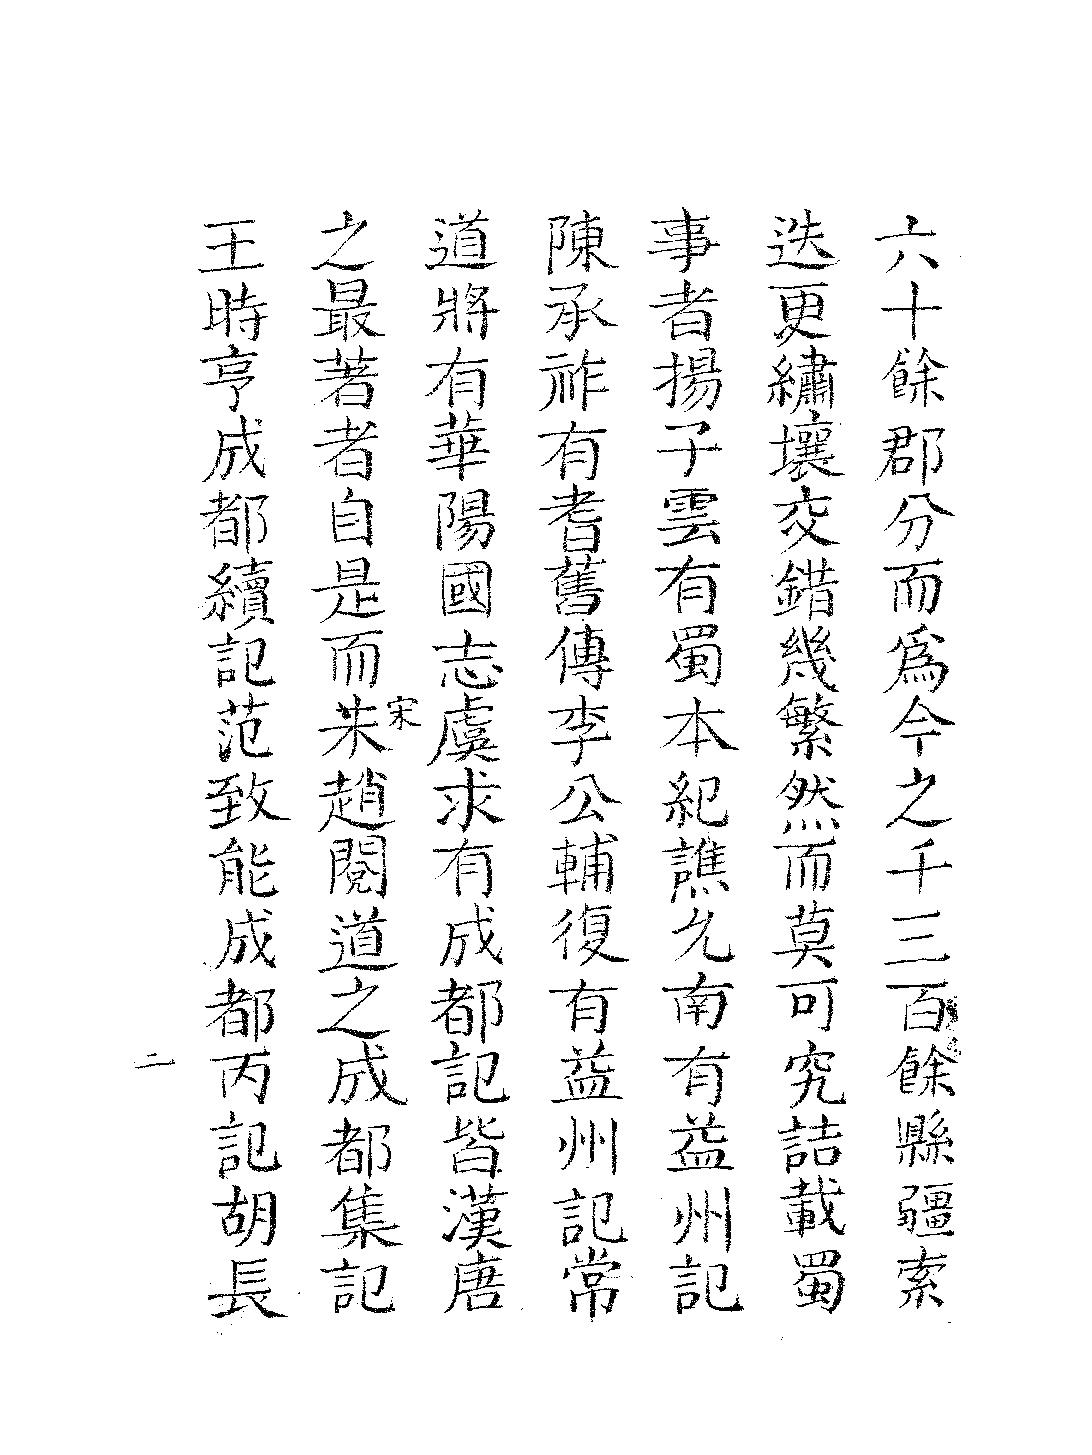 六十餘郡分而爲今之千三百餘縣疆索
迭更繡壤交錯幾繁然而莫可究詰載蜀
事者揚子雲有蜀本紀譙允南有益州記
陳承祚有耆舊傳李公輔復有益州記常
道將有華陽國志虞求有成都記皆漢唐
之最著者自是而朱趙閱道之成都集記
宋
王時亨成都續記范致能成都丙記胡長
二